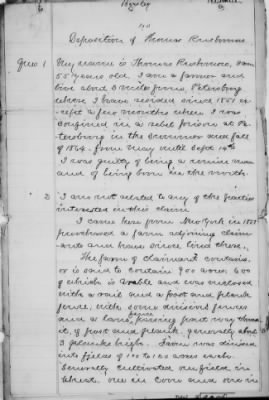 Deposition of Thomas Rushmore
Ques 1 My name is Thomas Rushmore, I am
55 years old. I am a farmer and
live about 3 miles from Petersburg
where I have resided since 1851 ex-
cept a few months when I was
confined in a rebel prison at Pe-
tersburg in the summer and fall
of 1864. from May until Sept 14th
I was guilty of being a union man
and of being born in the north.
2 I am not related to any of the parties
interested in this claim
I came here from New York in 1851
purchased a farm adjoining claim-
ants and have since lived there.
The farm of claimant contains.
or is said to contain 900 acres 600
of which is arable and was enclosed
with a rail and a post and plank
fence, with cross divisions fences
and a lane fence passing part way through
it, of post and plank, generally about
3 planks high. Farm was divided
into fields of 100 to 150 acres each.
Generally cultivated one field in
wheat, one in corn and one in